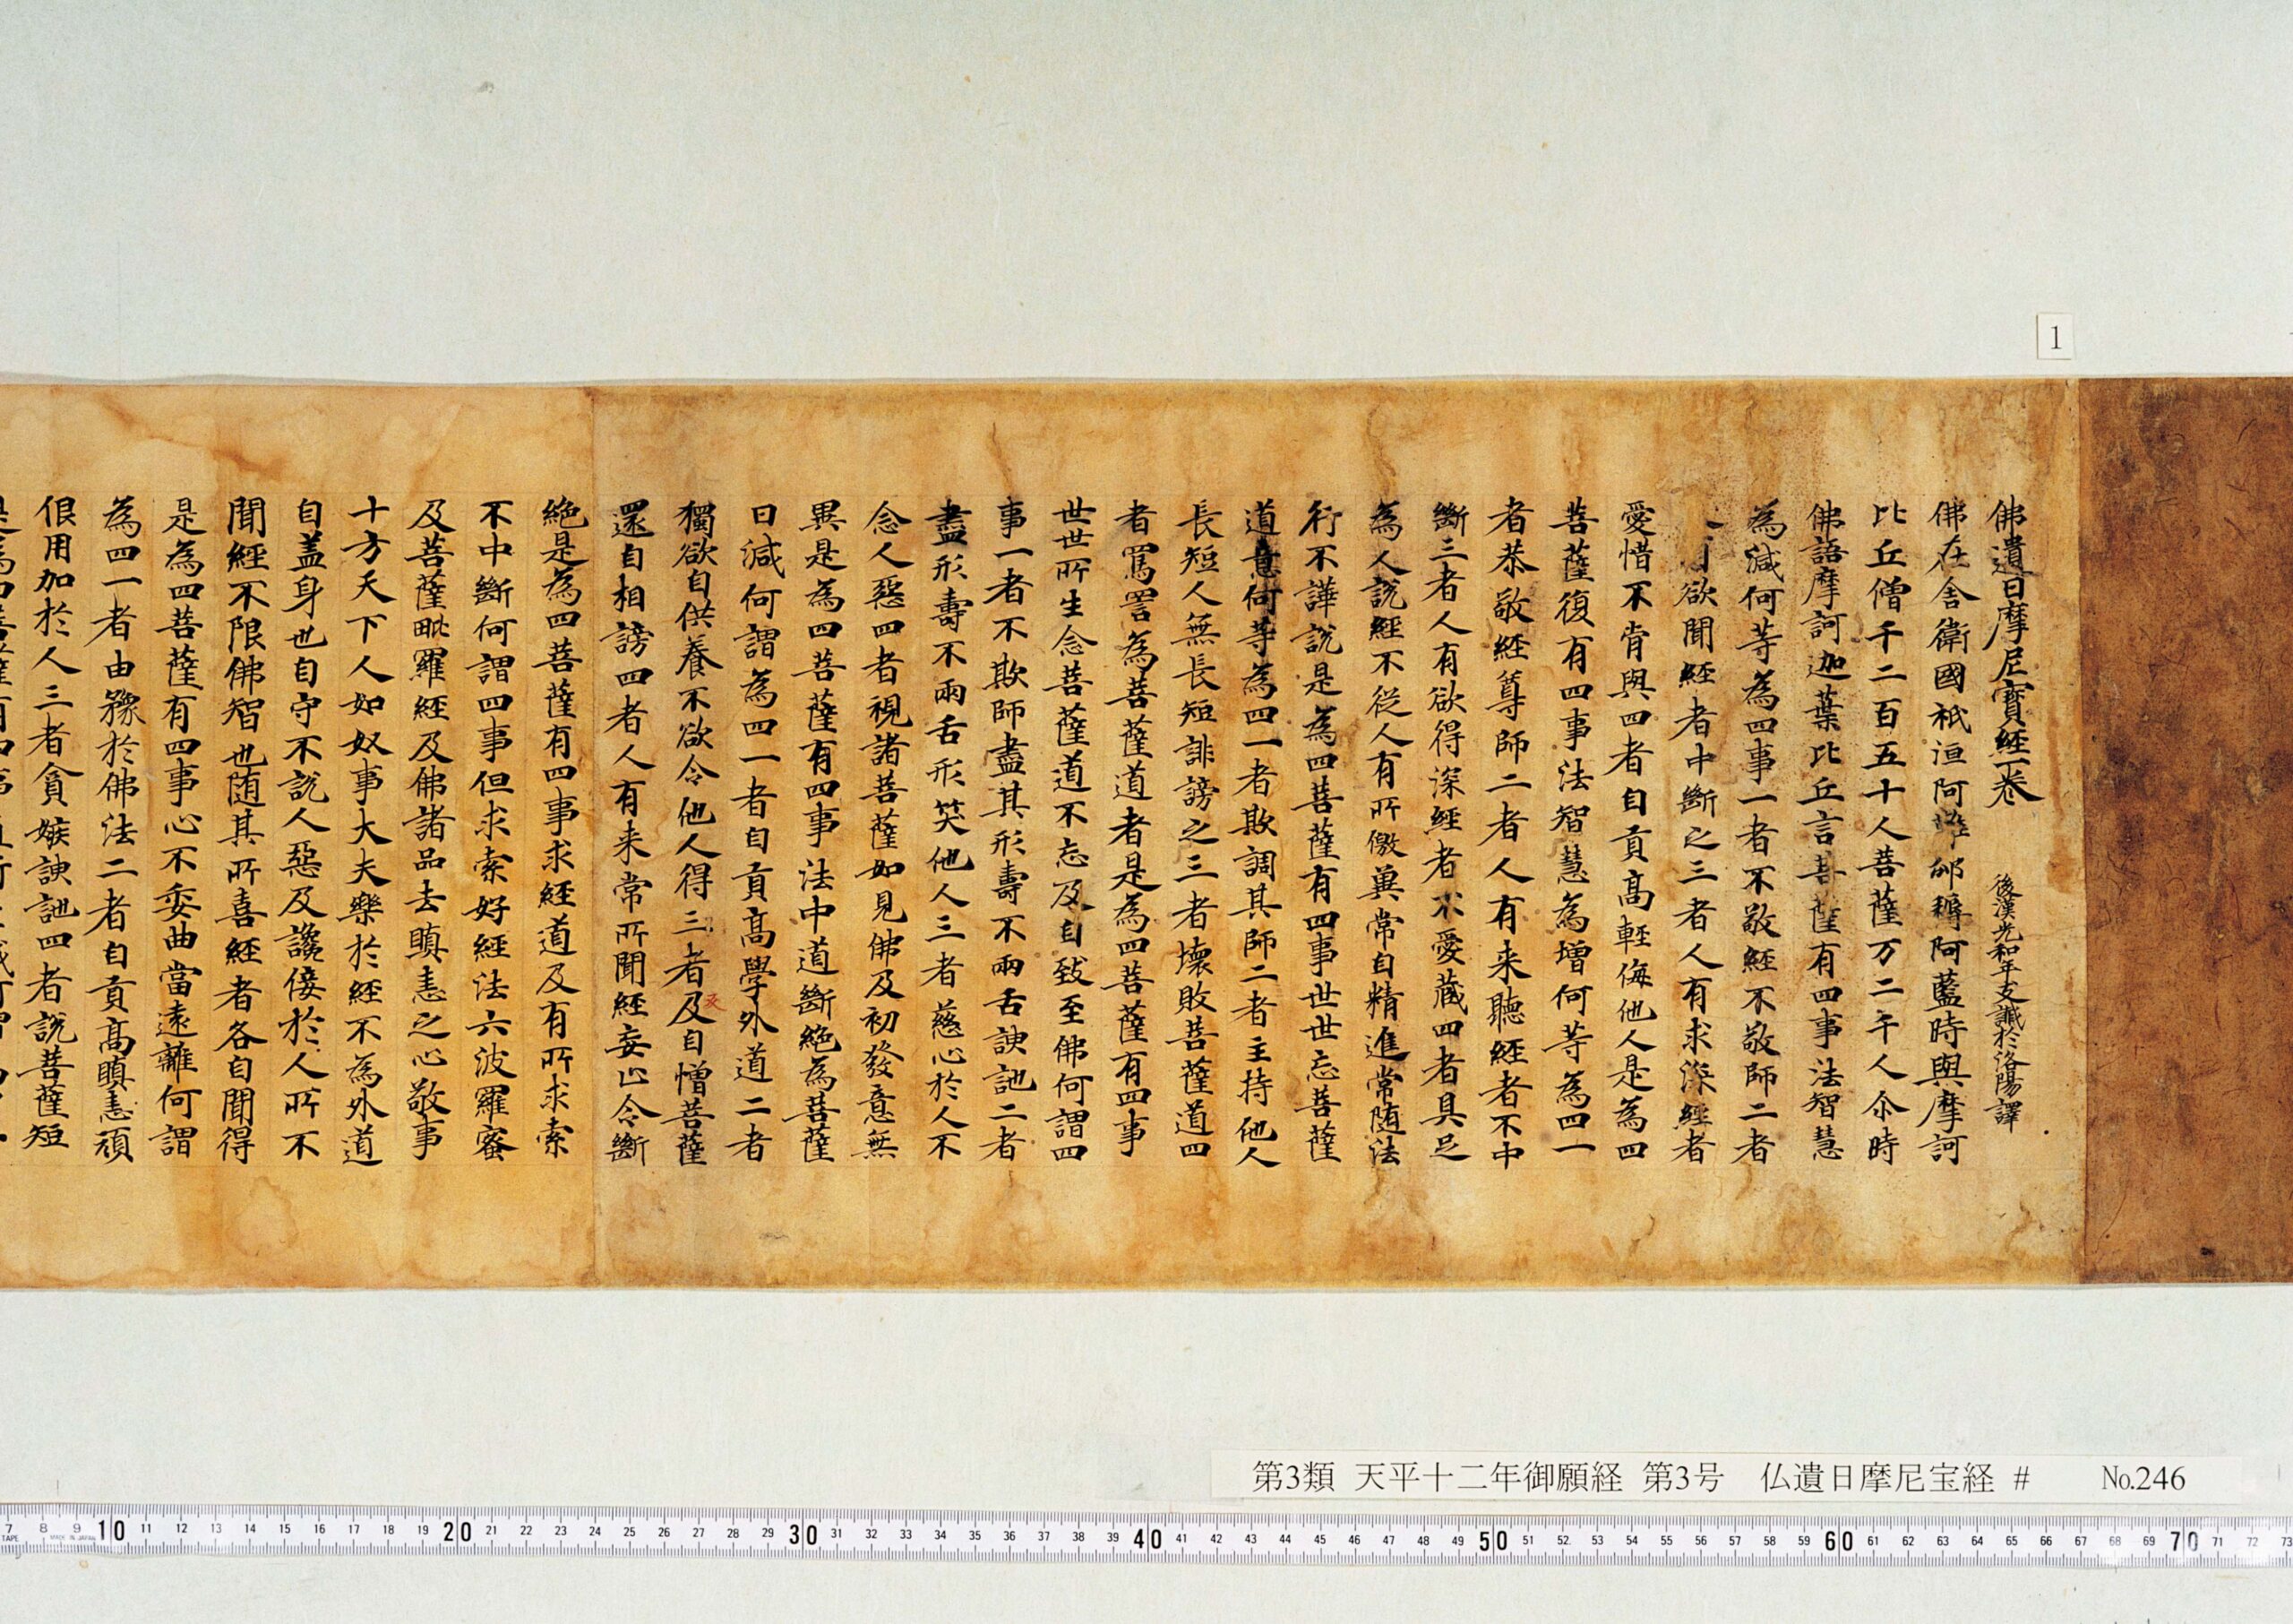 1
佛遺日摩尼寶經一卷 後漢光和年支讖於洛陽譯
佛在舍衛國祇洹阿難邠坻阿藍時與摩訶
比丘僧千二百五十人菩薩万二千人尒時
佛語摩訶迦葉比丘言菩薩有四事法智慧
為減何等為四事一者不敬經不敬師二者
人有欲聞經者中斷之三者人有求深經者
愛惜不肯與四者自貢高輕侮他人是為四
菩薩復有四事法智慧為增何等為四一
者恭敬經尊師二者人有来聽經者不中
斷三者人有欲得深經者不愛藏四者具足
為人說經不從人有所儌冀常自精進常随法
行不譁說是為四菩薩有四事世世忘菩薩
道意何等為四一者欺調其師二者主持他人
長短人無長短誹謗之三者壞敗菩薩道四
者罵詈為菩薩道者是為四菩薩有四事
世世所生念菩薩道不忘及自致至佛何謂四
事一者不欺師盡其形壽不兩舌諛訑二者
盡形壽不兩舌形笑他人三者慈心於人不
念人惡四者視諸菩薩如見佛及初發意無
異是為四菩薩有四事法中道斷絶為菩薩
日減何謂為四一者自貢高學外道二者
獨欲自供養不欲令他人得三者及自憎菩薩
還自相謗四者人有来常所聞經妄止令斷
絶是為四菩薩有四事求經道及有所求索
不中斷何謂四事但求索好經法六波羅蜜
及菩薩毗羅經及佛諸品去瞋恚之心敬事
十方天下人如奴事大夫樂於經不為外道
自盖身也自守不說人惡及讒佞於人所不
聞經不限佛智也随其所喜經者各自聞得
是為四菩薩有四事心不委曲當遠離何謂
為四一者由豫於佛法二者自貢高瞋恚頑
佷用加於人三者貪嫉諛訑四者說菩薩短
第3類 天平十二年御願経 第3号 仏遺日摩尼宝経 # No.246